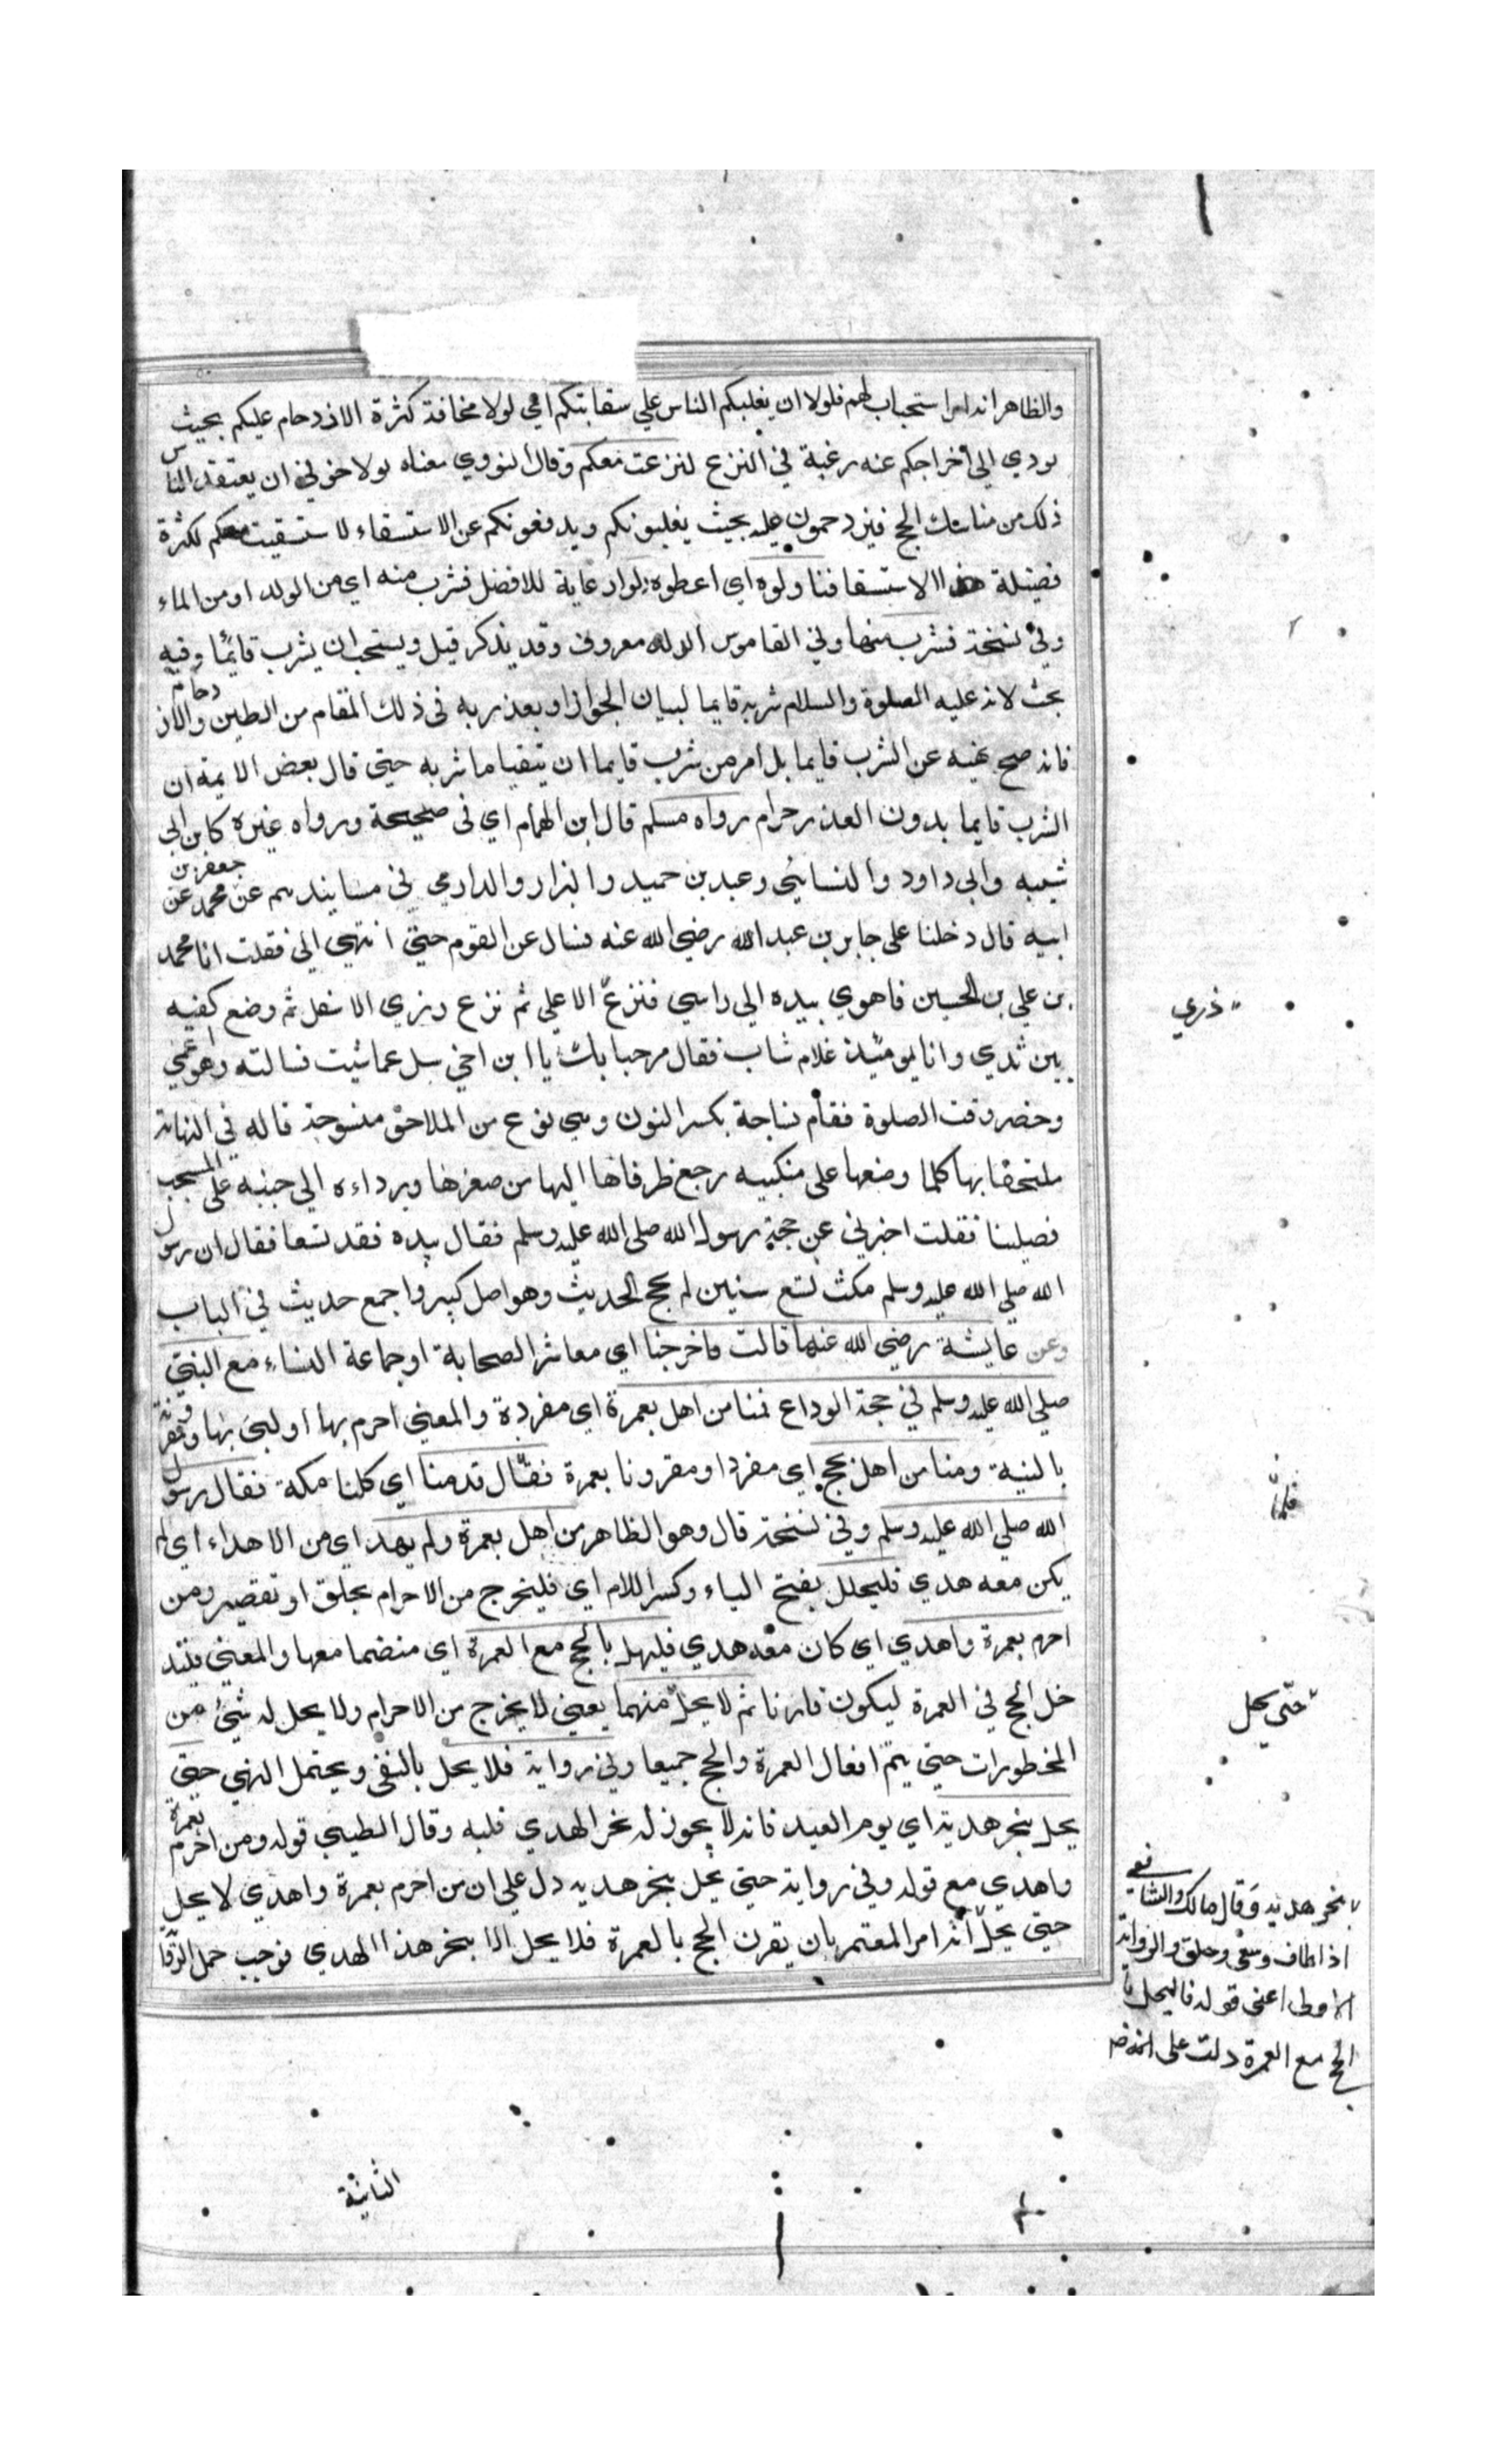 والظاهر انه امر استحباب لهم فلولا ان يغلبكم الناس علي سقايتكم اي لولا مخافة كثرة الازدحام عليكم بحيث
يودي الي اخراجكم عنه رغبة في النزع لنزعت معكم وقال النووي معناه لولا خوفي ان يعتقد الناس
ذلك من مناسك الحج فيزدحمون عليه بحيث يغلبونكم ويدفعونكم عن الاستسقاء لاستسقيت معكم لكثرة
فضيلة هذا الاستسقا فناولوه اي اعطوه دلوا رعاية للافضل فشرب منه اي من الدلو او من الماء
وفي نسخة فشرب منها وفي القاموس الدلو معروف وقد يذكر قيل ويستحب ان يشرب قائما وفيه
بحث لانه عليه الصلوة والسلام شربه قايما لبيان الجواز او بعذر به في ذلك المقام من الطين والازدحام
فانه صح نهيه عن الشرب قايما بل امر من شرب قايما ان يتقيا ما شربه حتي قال بعض الايمة ان
الشرب قايما بدون العذر حرام رواه مسلم قال ابن الهمام اي في صحيحه ورواه غيره كابن ابي
شيبه وابي داود والنسايئ وعبد بن حميد والبزار والدارمي في مسانيدهم عن جعفر بن محمد عن
ابيه قال دخلنا على جابر بن عبد الله رضي الله عنه فسال عن القوم حتي انتهي الي فقلت انا محمد
بن علي بن الحسين فاهوي بيده الي راسي فنزع الاعلي ثم نزع رزي الاسفل ثم وضع كفيه
ذري
بين ثدي وانا يومئذ غلام شاب فقال مرحبا بك يا ابن اخي سل عما شيت فسالته وهو اعمي
وحضر وقت الصلوة فقام نساجة بكسر النون وهي نوع من الملاحق منسوجة قاله في النهاية
ملتحفا بها كلما وضعها على منكبيه رجع طرفاها اليها من صغرها ورداءه الي جنبه على المشجب
فصلينا فقلت اخبرني عن حجة رسول الله صلى الله عليه وسلم فقال بيده فعقد تسعا فقال ان رسول
الله صلي الله عليه وسلم مكث تسع سنين لم يحج الحديث وهو اصل كبير واجمع حديث في الباب
وعن عايشة رضي الله عنها قالت خرجنا اي معاشر الصحابة او جماعة النساء مع النبي
صلي الله عليه وسلم في حجة الوداع فمنا من اهل بعمرة اي مفردة والمعني احرم بها او لبي بها مقرونة
بالنية ومنا من اهل بحج اي مفردا او مقرونا بعمرة فقال قدمنا اي كلنا مكة فقال رسول
فلما
الله صلي الله عليه وسلم وفي نسخة قال وهو الظاهر من اهل بعمرة ولم يهد اي من الاهداء اي لم
يكن معه هدي فليحلل بفتح الياء وكسر اللام اي فليخرج من الاحرام بحلق او تقصير ومن
احرم بعمرة واهدي اي كان معه هدي فليهل بالحج مع العمرة اي منضما معها والمعني فليد
خل الحج في العمرة ليكون قارنا ثم لا يحل منهما يعني لا يخرج من الاحرام ولا يحل له شئ من
حتى يحل
المحظورات حتي يتم افعال العمرة والحج جميعا وفي رواية فلا يحل بالنفي ويحتمل النهي حتي
يحل بنحر هديته اي يوم العيد فانه لا يجوز له نحر الهدي قلبه وقال الطيبي قوله ومن احرم بعمرة
واهدي مع قوله وفي رواية حتي يحل بنحر هديه دل علي ان من احرم بعمرة واهدي لا يحل
حتي يحل انه امر المعتمر بان يقرن الحج بالعمرة فلا يحل الا بنحر هذا الهدي فوجب حمل الروا
بنحر هديه وقال مالك والشافعي
اذا طاف وسعى وحلق والرواية
الاولى اعني قوله فاليهل با
الحج مع العمرة دلت على انه
الثانية